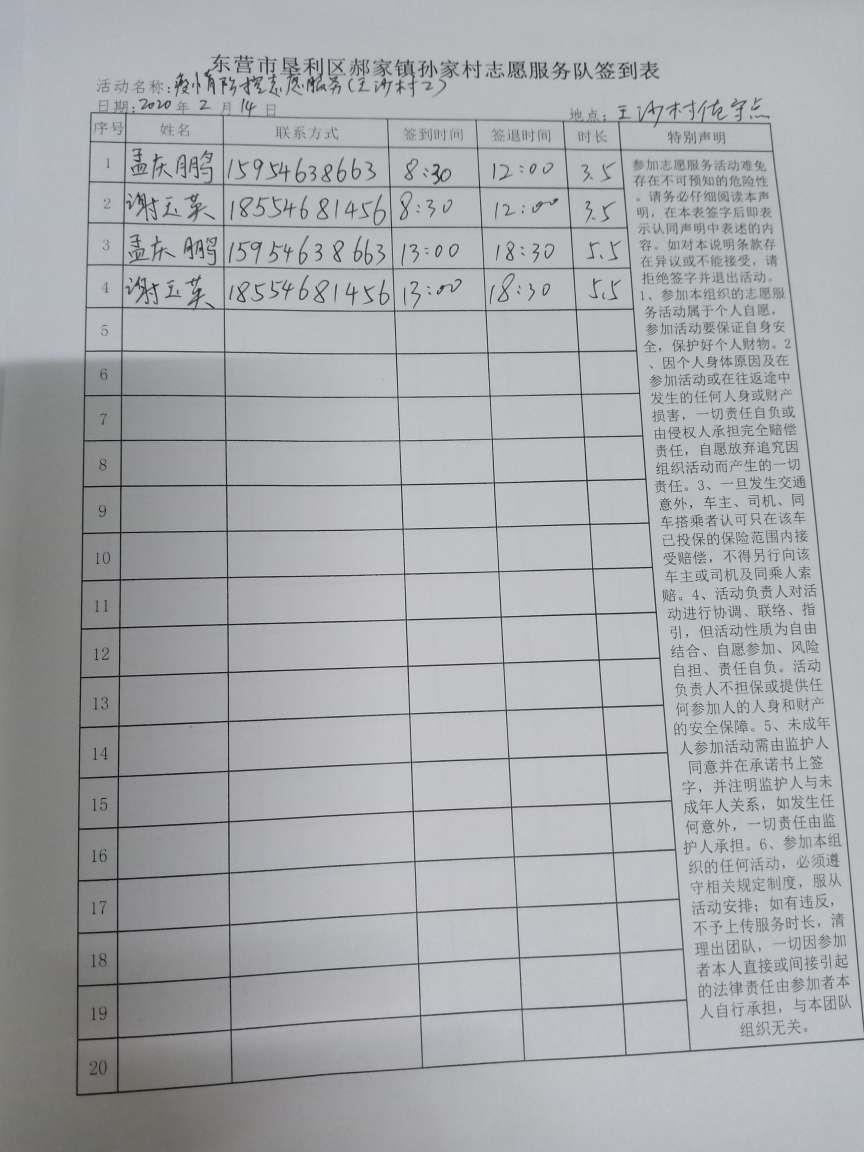 东营市垦利区郝家镇孙家村志愿服务队签到表
活动名称:疫情防控志愿服务(王沙村2)
日期:2020年2月14日
地点:王沙村值守点
序号 姓名 联系方式 签到时间 签退时间 时长 特别声明
1 孟庆鹏 15954638663 8:30 12:00 3.5
2 谢玉英 18554681456 8:30 12:00 3.5
3 孟庆鹏 15954638663 13:00 18:30 5.5
4 谢玉英 18554681456 13:00 18:30 5.5
5
6
7
8
9
10
11
12
13
14
15
16
17
18
19
20
参加志愿服务活动难免
存在不可预知的危险性
。请务必仔细阅读本声
明，在本表签字后即表
示认同声明中表述的内
容。如对本说明条款存
在异议或不能接受，请
拒绝签字并退出活动。
1、参加本组织的志愿服
务活动属于个人自愿，
参加活动要保证自身安
全，保护好个人财物。2
、因个人身体原因及在
参加活动或在往返途中
发生的任何人身或财产
损害，一切责任自负或
由侵权人承担完全赔偿
责任，自愿放弃追究因
组织活动而产生的一切
责任。3、一旦发生交通
意外，车主、司机、同
车搭乘者认可只在该车
已投保的保险范围内接
受赔偿，不得另行向该
车主或司机及同乘人索
赔。4、活动负责人对活
动进行协调、联络、指
引，但活动性质为自由
结合、自愿参加、风险
自担、责任自负。活动
负责人不担保或提供任
何参加人的人身和财产
的安全保障。5、未成年
人参加活动需由监护人
同意并在承诺书上签
字，并注明监护人与未
成年人关系，如发生任
何意外，一切责任由监
护人承担。6、参加本组
织的任何活动，必须遵
守相关规定制度，服从
活动安排；如有违反，
不予上传服务时长，清
理出团队，一切因参加
者本人直接或间接引起
的法律责任由参加者本
人自行承担，与本团队
组织无关。